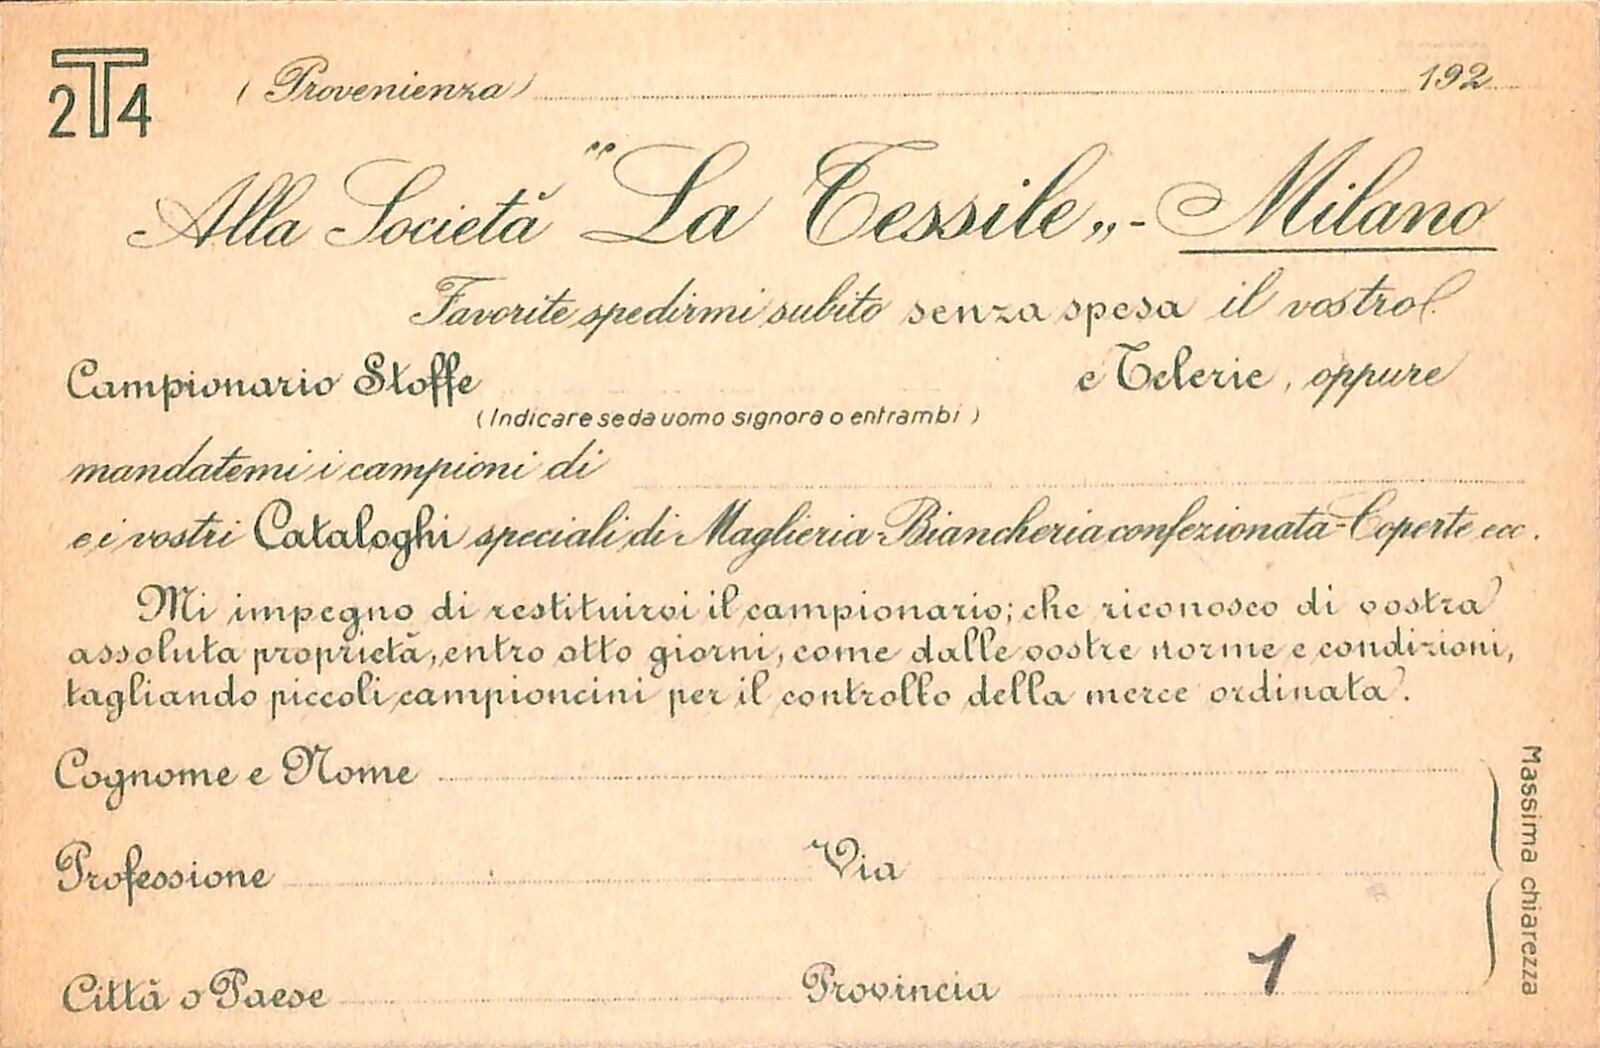 2T4
(Provenienza) 192
Alla Società "La Tessile„ - Milano
Favorite spedirmi subito senza spesa il vostro
Campionario Stoffe e Telerie, oppure
(Indicare se da uomo signora o entrambi)
mandatemi i campioni di
e i vostri Cataloghi speciali di Maglieria-Biancheria confezionata-Coperte ecc.
Mi impegno di restituirvi il campionario; che riconosco di vostra
assoluta proprietà, entro otto giorni, come dalle vostre norme e condizioni,
tagliando piccoli campioncini per il controllo della merce ordinata.
Cognome e Nome
Professione Via
Città o Paese Provincia 1
Massima chiarezza